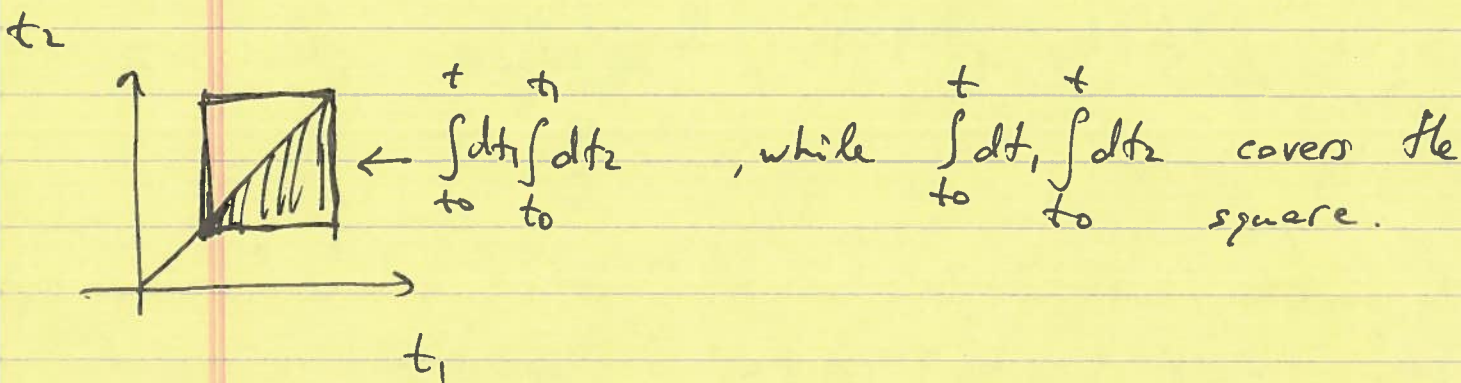 t₂
← ∫_{t₀}^{t} dt₁ ∫_{t₀}^{t₁} dt₂ , while ∫_{t₀}^{t} dt₁ ∫_{t₀}^{t} dt₂ covers the
square.
t₁